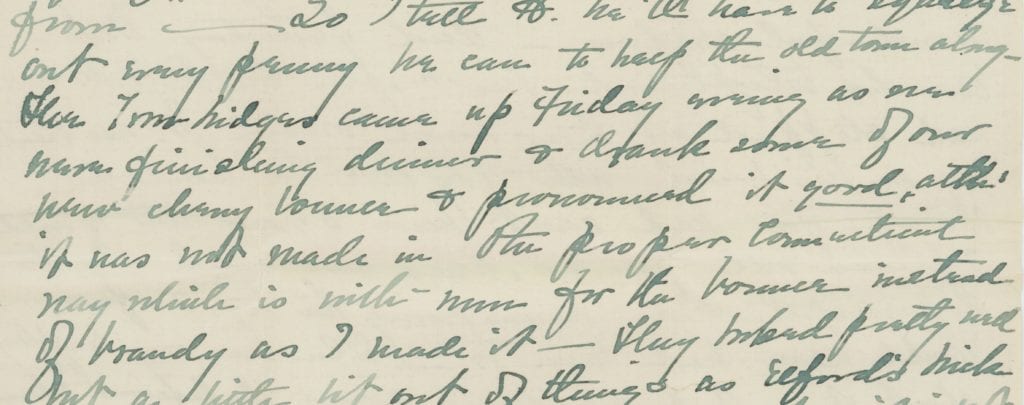 from —— So I tell A. he'll have to squeeze
out every penny he can to help the old town along -
The Trowbridges came up Friday evening as we
were finishing dinner & drank some of our
new cherry bounce & pronounced it good, altho'
it was not made in the proper Connecticut
way which is with rum for the bounce instead
of brandy as I made it — They looked pretty well
but a little bit out of things as Elford's Mick